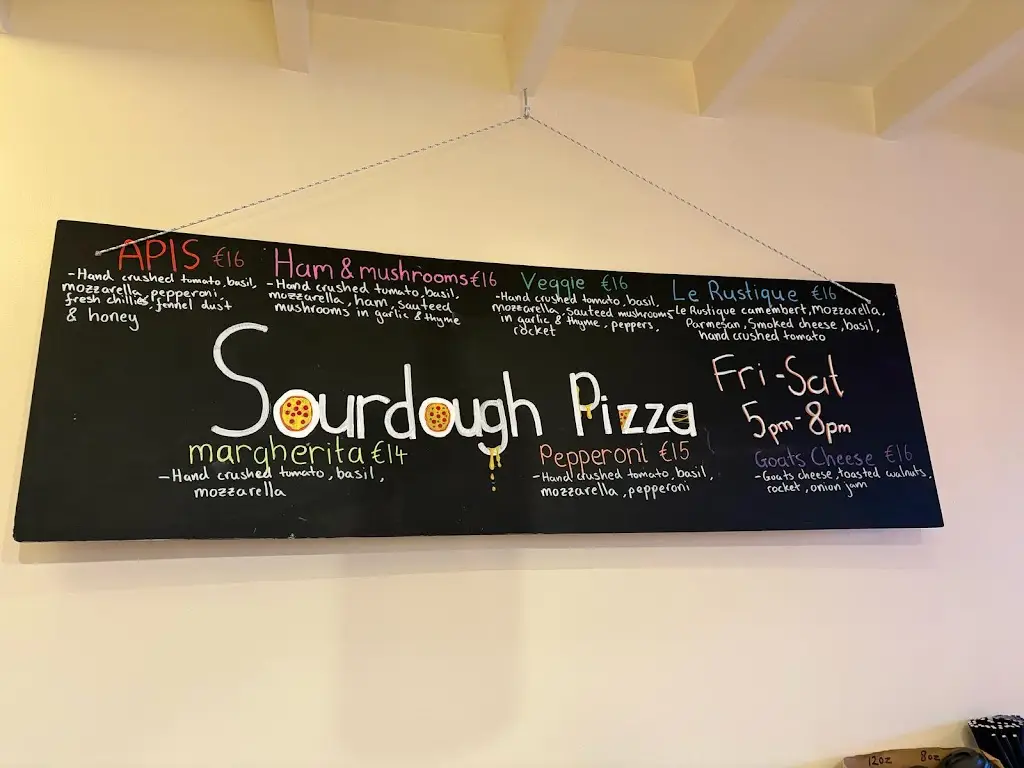 APIS €16
-Hand crushed tomato, basil,
mozzarella, pepperoni,
fresh chillies, fennel dust
& honey
Ham & mushrooms €16
-Hand crushed tomato, basil,
mozzarella, ham, sauteed
mushrooms in garlic & thyme
Veggie €16
-Hand crushed tomato, basil,
mozzarella, sauteed mushrooms
in garlic & thyme, peppers,
rocket
Le Rustique €16
-Le Rustique camembert, Mozzarella,
Parmesan, Smoked cheese, basil,
hand crushed tomato
Sourdough Pizza
Fri-Sat
5pm-8pm
margherita €14
-Hand crushed tomato, basil,
mozzarella
Pepperoni €15
-Hand crushed tomato, basil,
mozzarella, pepperoni
Goats Cheese €16
-Goats cheese, toasted walnuts,
rocket, onion jam
12oz 8oz